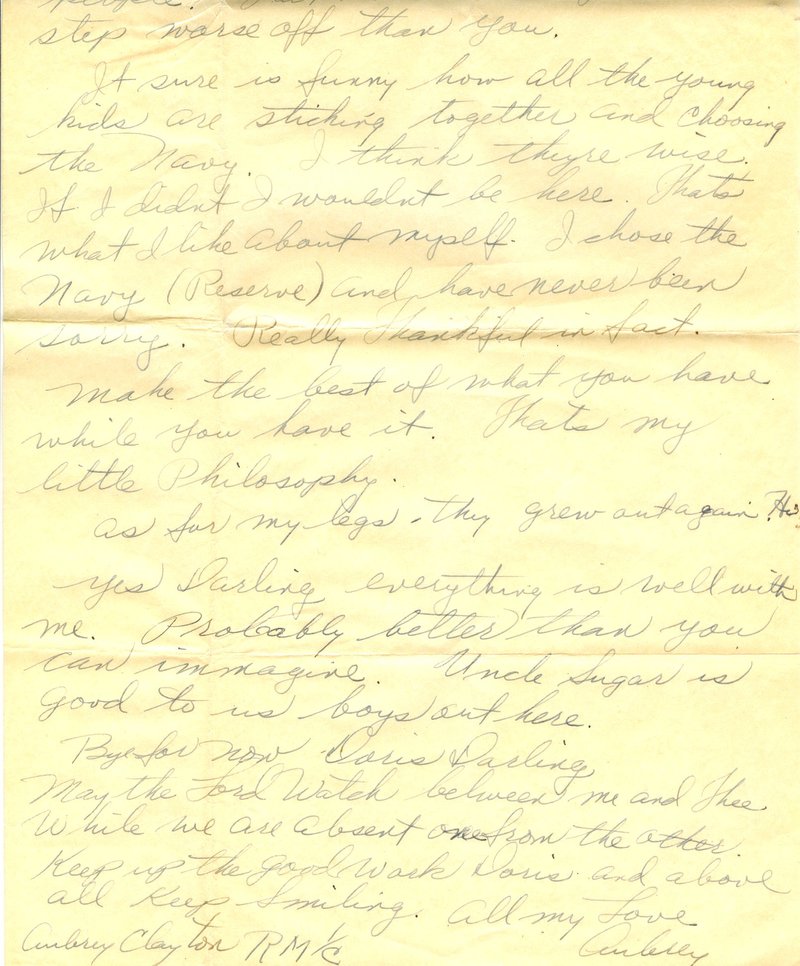 people.
step worse off than you.
It sure is funny how all the young
kids are sticking together and choosing
the Navy. I think theyre wise.
If I didnt I wouldnt be here. Thats
what I like about myself. I chose the
Navy (Reserve) and have never been
sorry. Really Thankful in fact.
make the best of what you have
while you have it. Thats my
little Philosophy.
as for my legs - they grew out again.
yes Darling everything is well with
me. Probably better than you
can immagine. Uncle Sugar is
good to us boys out here.
Bye for now Doris Darling
May the Lord Watch between me and Thee
While we are absent one from the other.
Keep up the good work Doris and above
all Keep Smiling. All my Love
Aubrey Clayton RM 1/c Aubrey